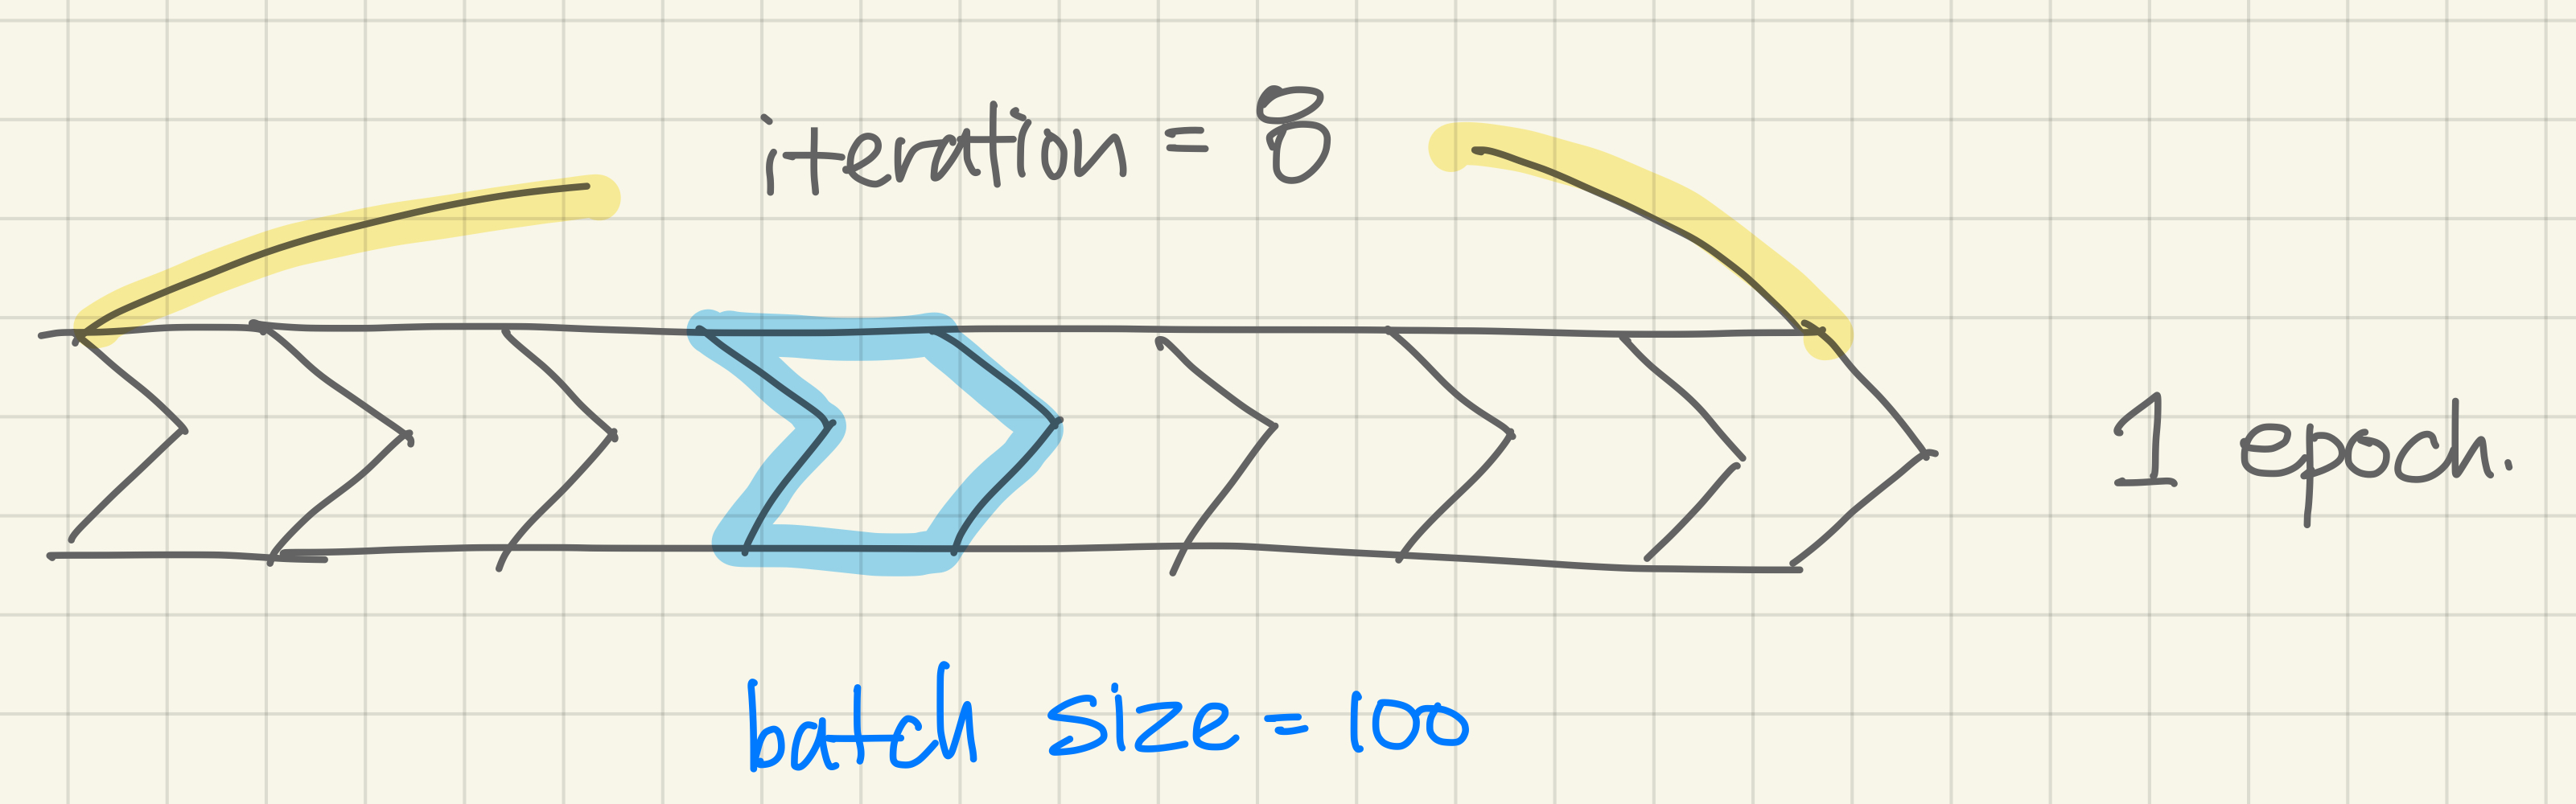 iteration = 8
1 epoch.
batch size = 100